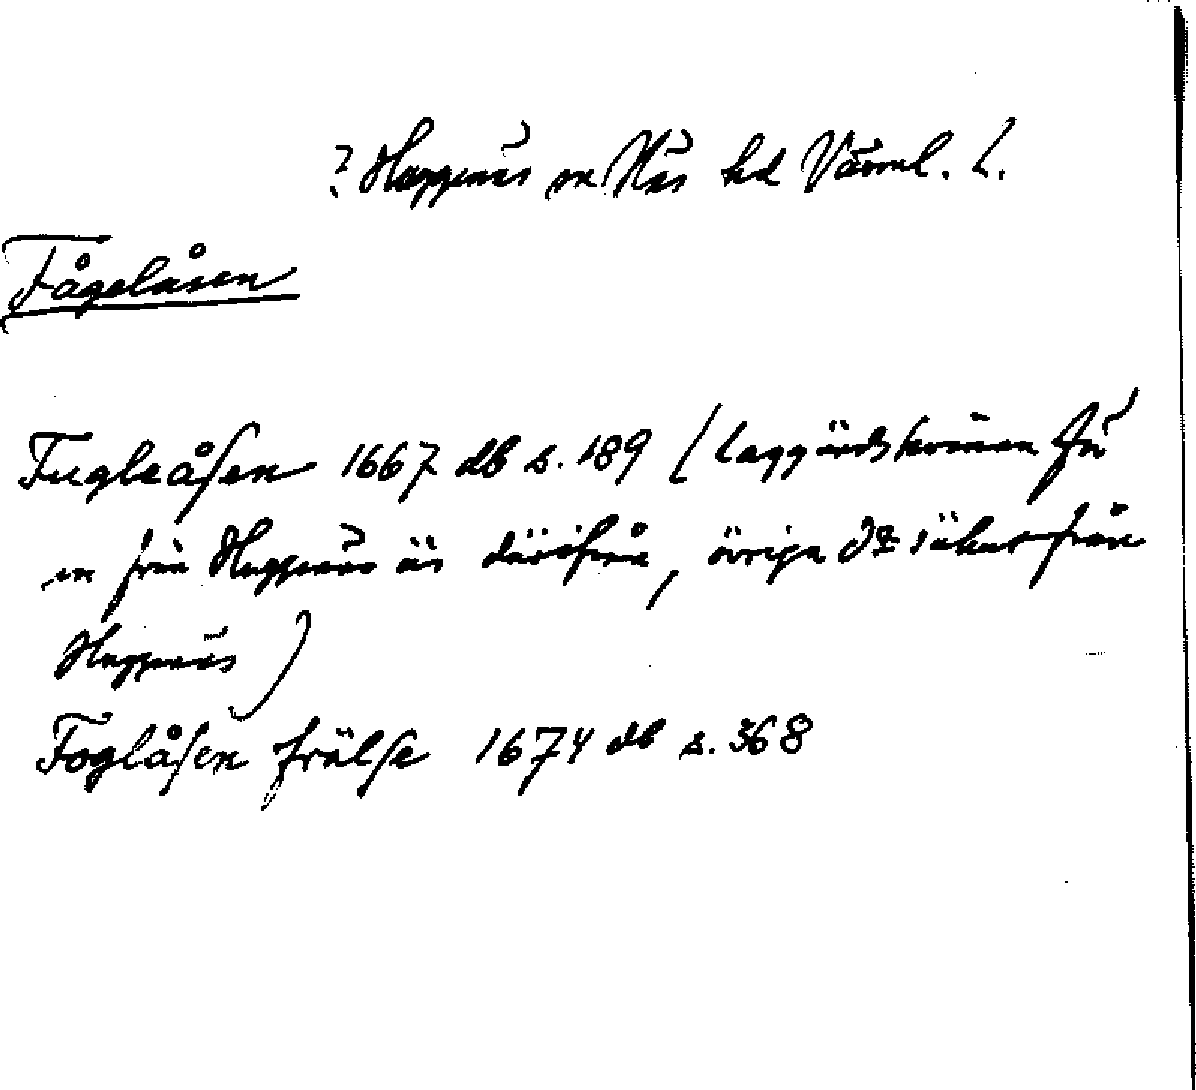 ? Huggenäs sn Näs hd Värml. L.
Fågelåsen
Fugleåsen 1667 db s. 189 (laggärdskvinnan för
en från Huggenäs är därifrån, övriga säkert från
Huggenäs)
Foglåsen frälse 1674 db s. 368